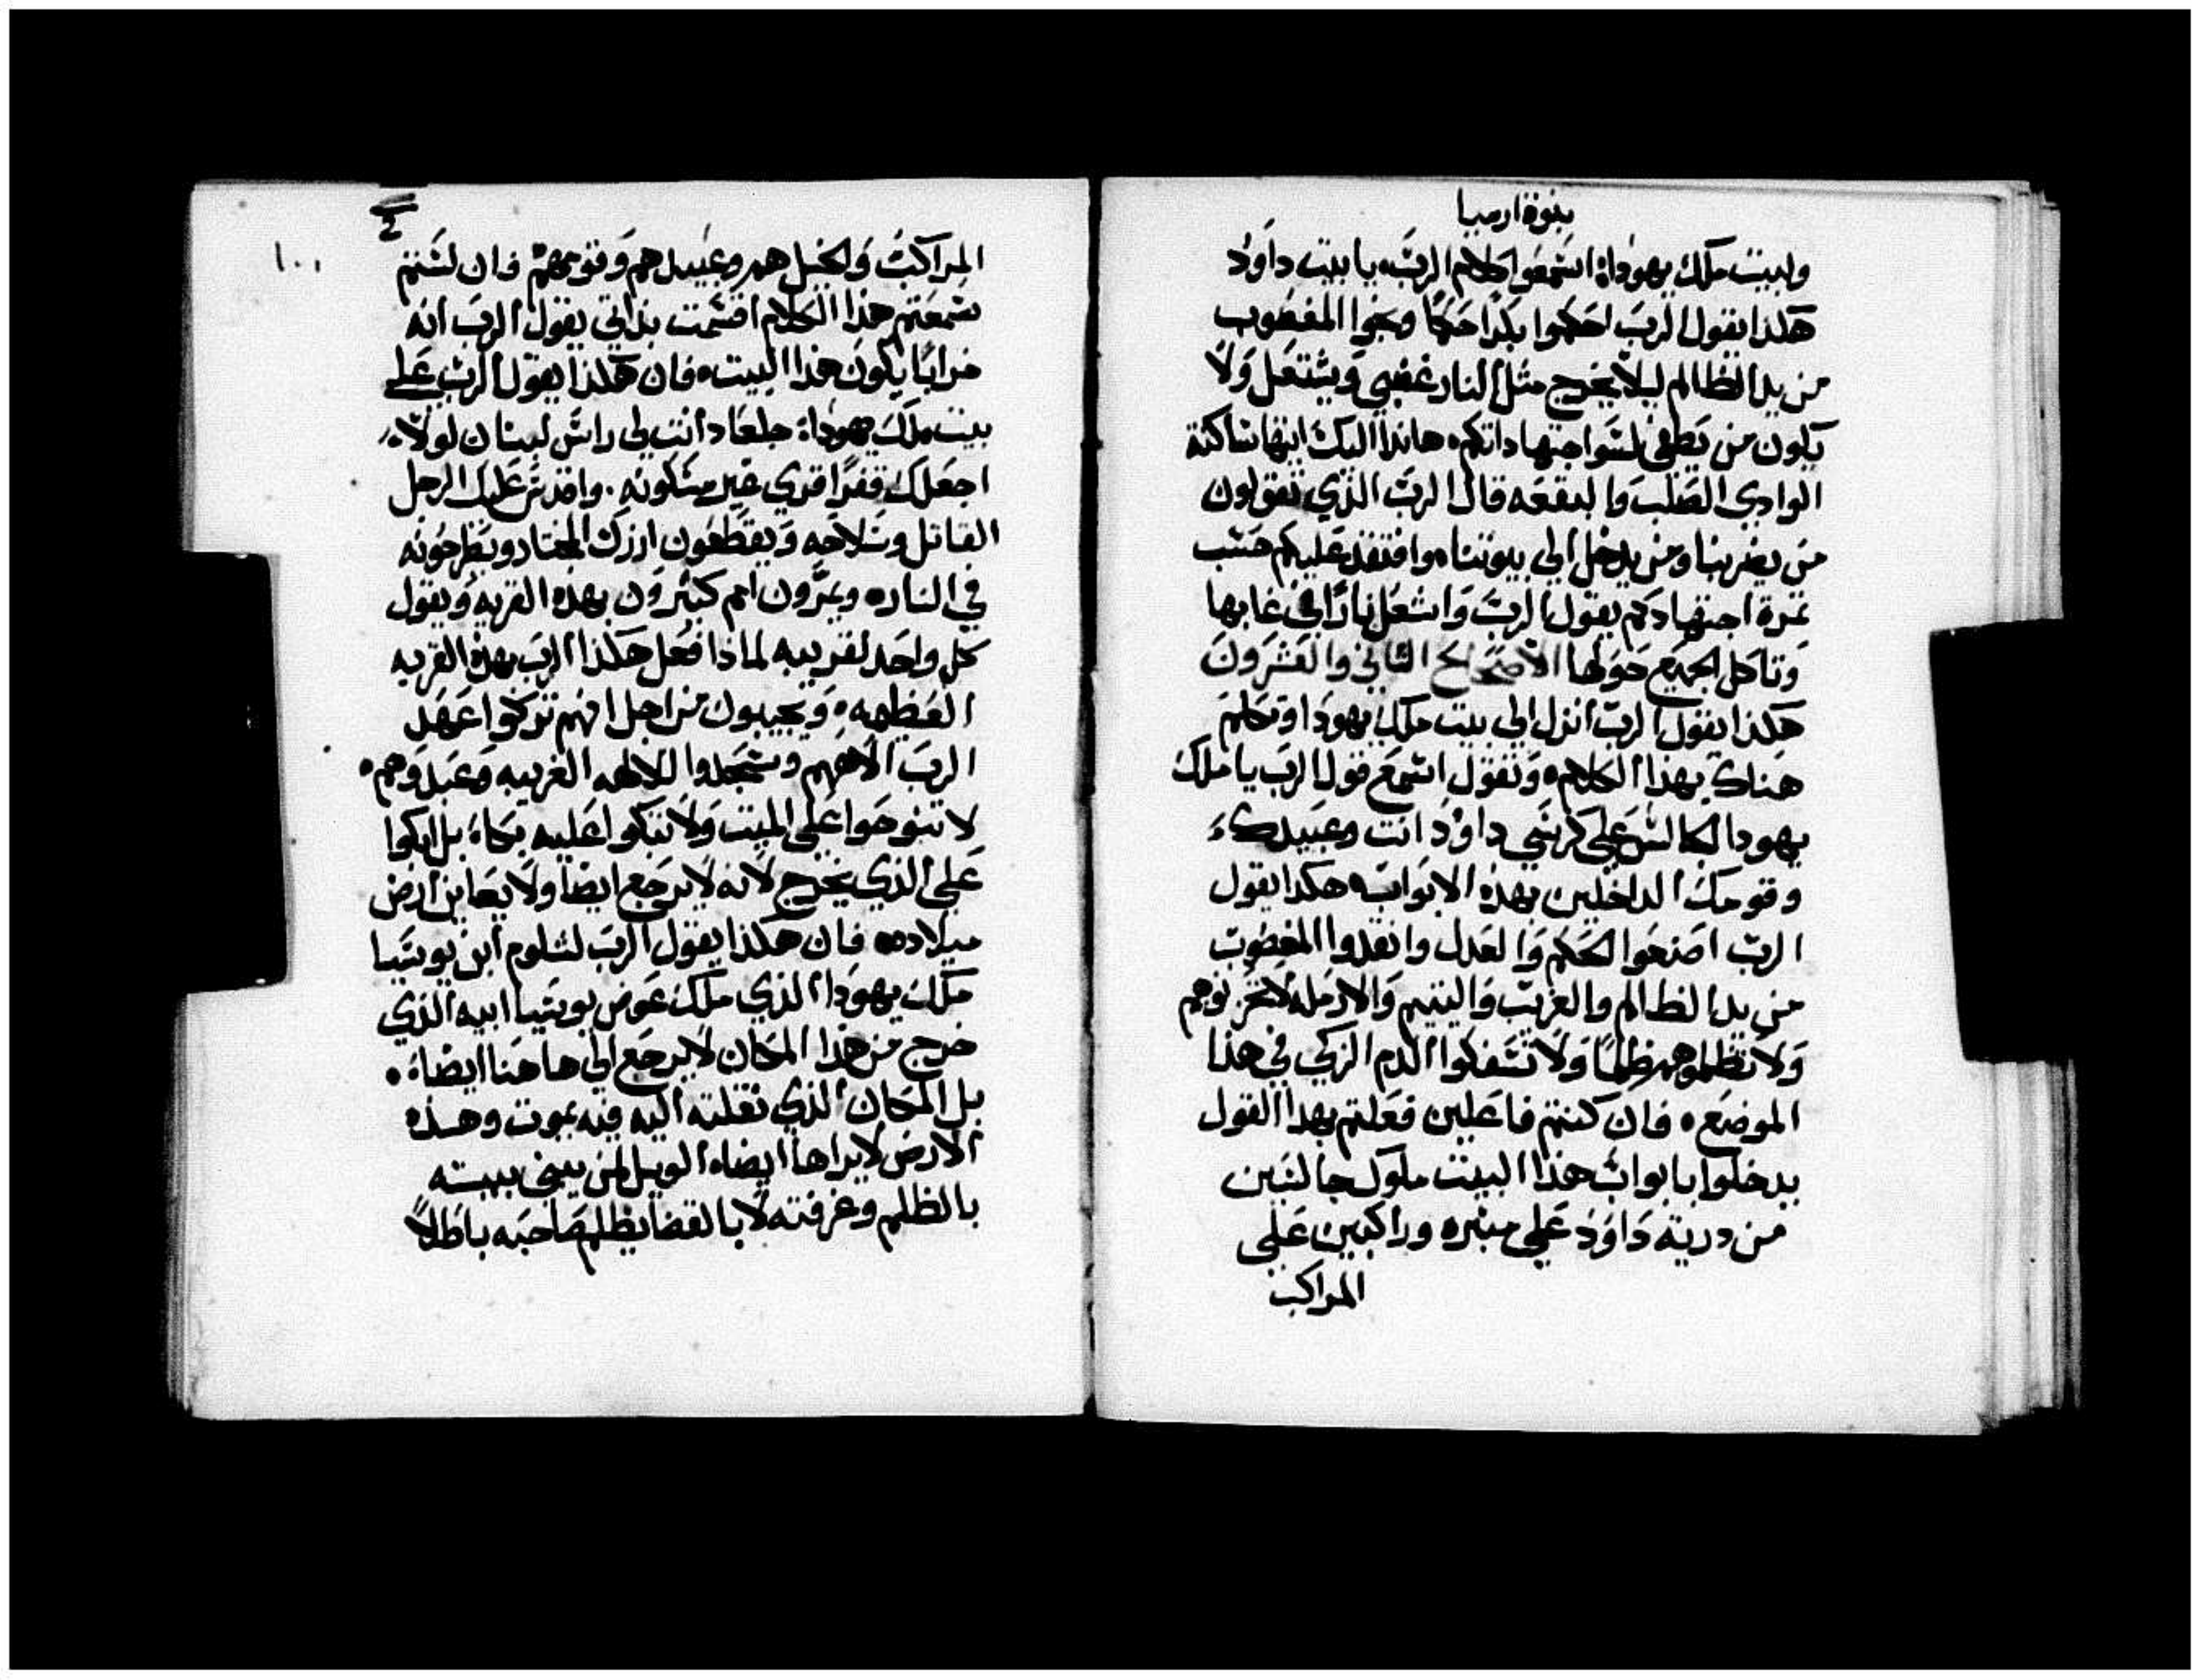 بنوة ارميا
ولبيت ملك يهودا: اسمعوا كلام الرب يا بيت داود
هكذا يقول الرب احكموا بكرا حكما ونجوا المغصوب
من يد الظالم ليلا يخرج مثل النار غضبي ويشتعل ولا
يكون من يطفي لسو اجتهاداتكم هانذا اليك ايتها ساكنة
الوادي الصلب والبقعه قال الرب الذي تقولون
من يضربنا ومن يدخل الي بيوتنا وافتقد عليكم حسب
ثمرة اجتهادكم يقول الرب واشعل نارا في غابها
وتاكل الجميع حولها الاصحاح الثاني والعشرون
هكذا يقول الرب انزل الي بيت ملك يهودا وتكلم
هناك بهذا الكلام وتقول اسمع قول الرب يا ملك
يهودا الجالس علي كرسي داود انت وعبيدك
وقومك الداخلين بهذه الابواب هكذا يقول
الرب اصنعوا الحكم والعدل وانقذوا المغصوب
من يد الظالم والغريب واليتيم والارمله لا تحزنوهم
ولا تظلموهم ظلما ولا تسفكوا الدم الزكي في هذا
الموضع فان كنتم فاعلين فعلتم بهذا القول
يدخلوا بابواب هذا البيت ملوك جالسين
من درية داود علي منبره وراكبين علي
المراكب
ع
١٠١
المراكب والخيل هم وعبيدهم وقومهم فان لستم
سمعتم هذا الكلام اقسمت بذاتي يقول الرب انه
خرابا يكون هذا البيت فان هكذا يقول الرب علي
بيت ملك يهودا: جلعاد انت لي راس لبنان لولا
اجعلك قفرا قري غير مسكونه. واقدس عليك الرجل
القاتل وسلاحه ويقطعون ارزك المختار ويطرحونه
في النار ويمرون امم كثيرون بهذه القريه ويقول
كل واحد لقريبه لماذا فعل هكذا الرب بهذه القريه
العظيمه ويجيبون من اجل انهم تركوا عهد
الرب الاههم وسجدوا للالهه الغريبه وعبدوهم
لا تنوحوا علي الميت ولا تبكوا عليه بكا: بل ابكوا
علي الذي يخرج لانه لا يرجع ايضا ولا يعاين ارض
ميلاده فان هكذا يقول الرب لشلوم ابن يوشيا
ملك يهودا الذي ملك عوض يوشيا ابيه الذي
خرج من هذا المكان لا يرجع الي هاهنا ايضا
بل المكان الذي نقلته اليه فيه يموت وهذه
الارض لا يراها ايضا الويل لمن يبني بيته
بالظلم وغرفته لا بالقضا يظلم صاحبه باطلا